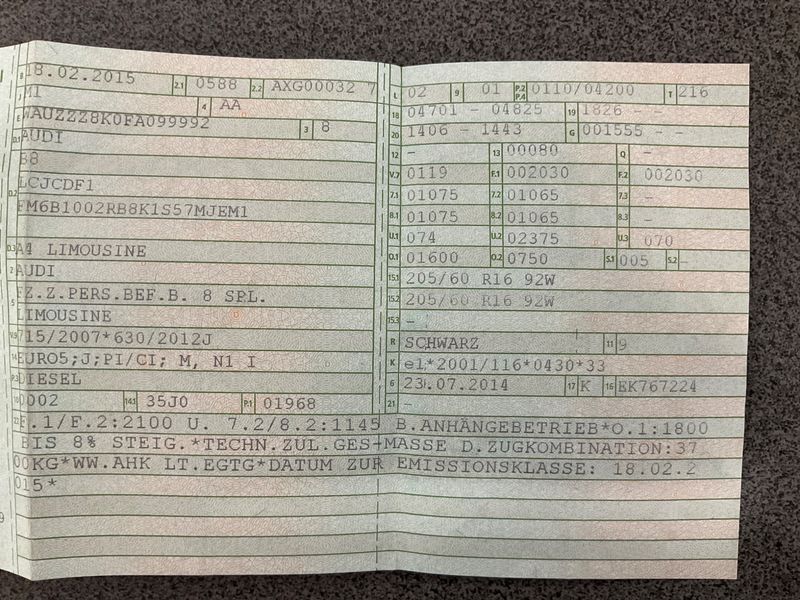 B 18.02.2015 2.1 0588 2.2 AXG00032 7
J M1 4 AA
E WAUZZZ8K0FA099992 3 8
D.1 AUDI
B8
D.2 LCJCDF1
FM6B1002RB8K1S57MJEM1
D.3 A4 LIMOUSINE
2 AUDI
5 FZ.Z.PERS.BEF.B. 8 SPL.
LIMOUSINE
V.9 715/2007*630/2012J
14 EURO5;J;PI/CI; M, N1 I
P.3 DIESEL
10 0002 14.1 35J0 P.1 01968
L 02 9 01 P.2 P.4 0110/04200 T 216
18 04701 - 04825 19 1826 - -
20 1406 - 1443 G 001555 - -
12 - 13 00080 Q -
V.7 0119 F.1 002030 F.2 002030
7.1 01075 7.2 01065 7.3 -
8.1 01075 8.2 01065 8.3 -
U.1 074 U.2 02375 U.3 070
O.1 01600 O.2 0750 S.1 005 S.2 -
15.1 205/60 R16 92W
15.2 205/60 R16 92W
15.3 -
R SCHWARZ 11 9
K e1*2001/116*0430*33
6 23.07.2014 17 K 16 EK767224
21 -
22 F.1/F.2:2100 U. 7.2/8.2:1145 B.ANHÄNGEBETRIEB*O.1:1800
BIS 8% STEIG.*TECHN.ZUL.GES-MASSE D.ZUGKOMBINATION:37
00KG*WW.AHK LT.EGTG*DATUM ZUR EMISSIONSKLASSE: 18.02.2
015*